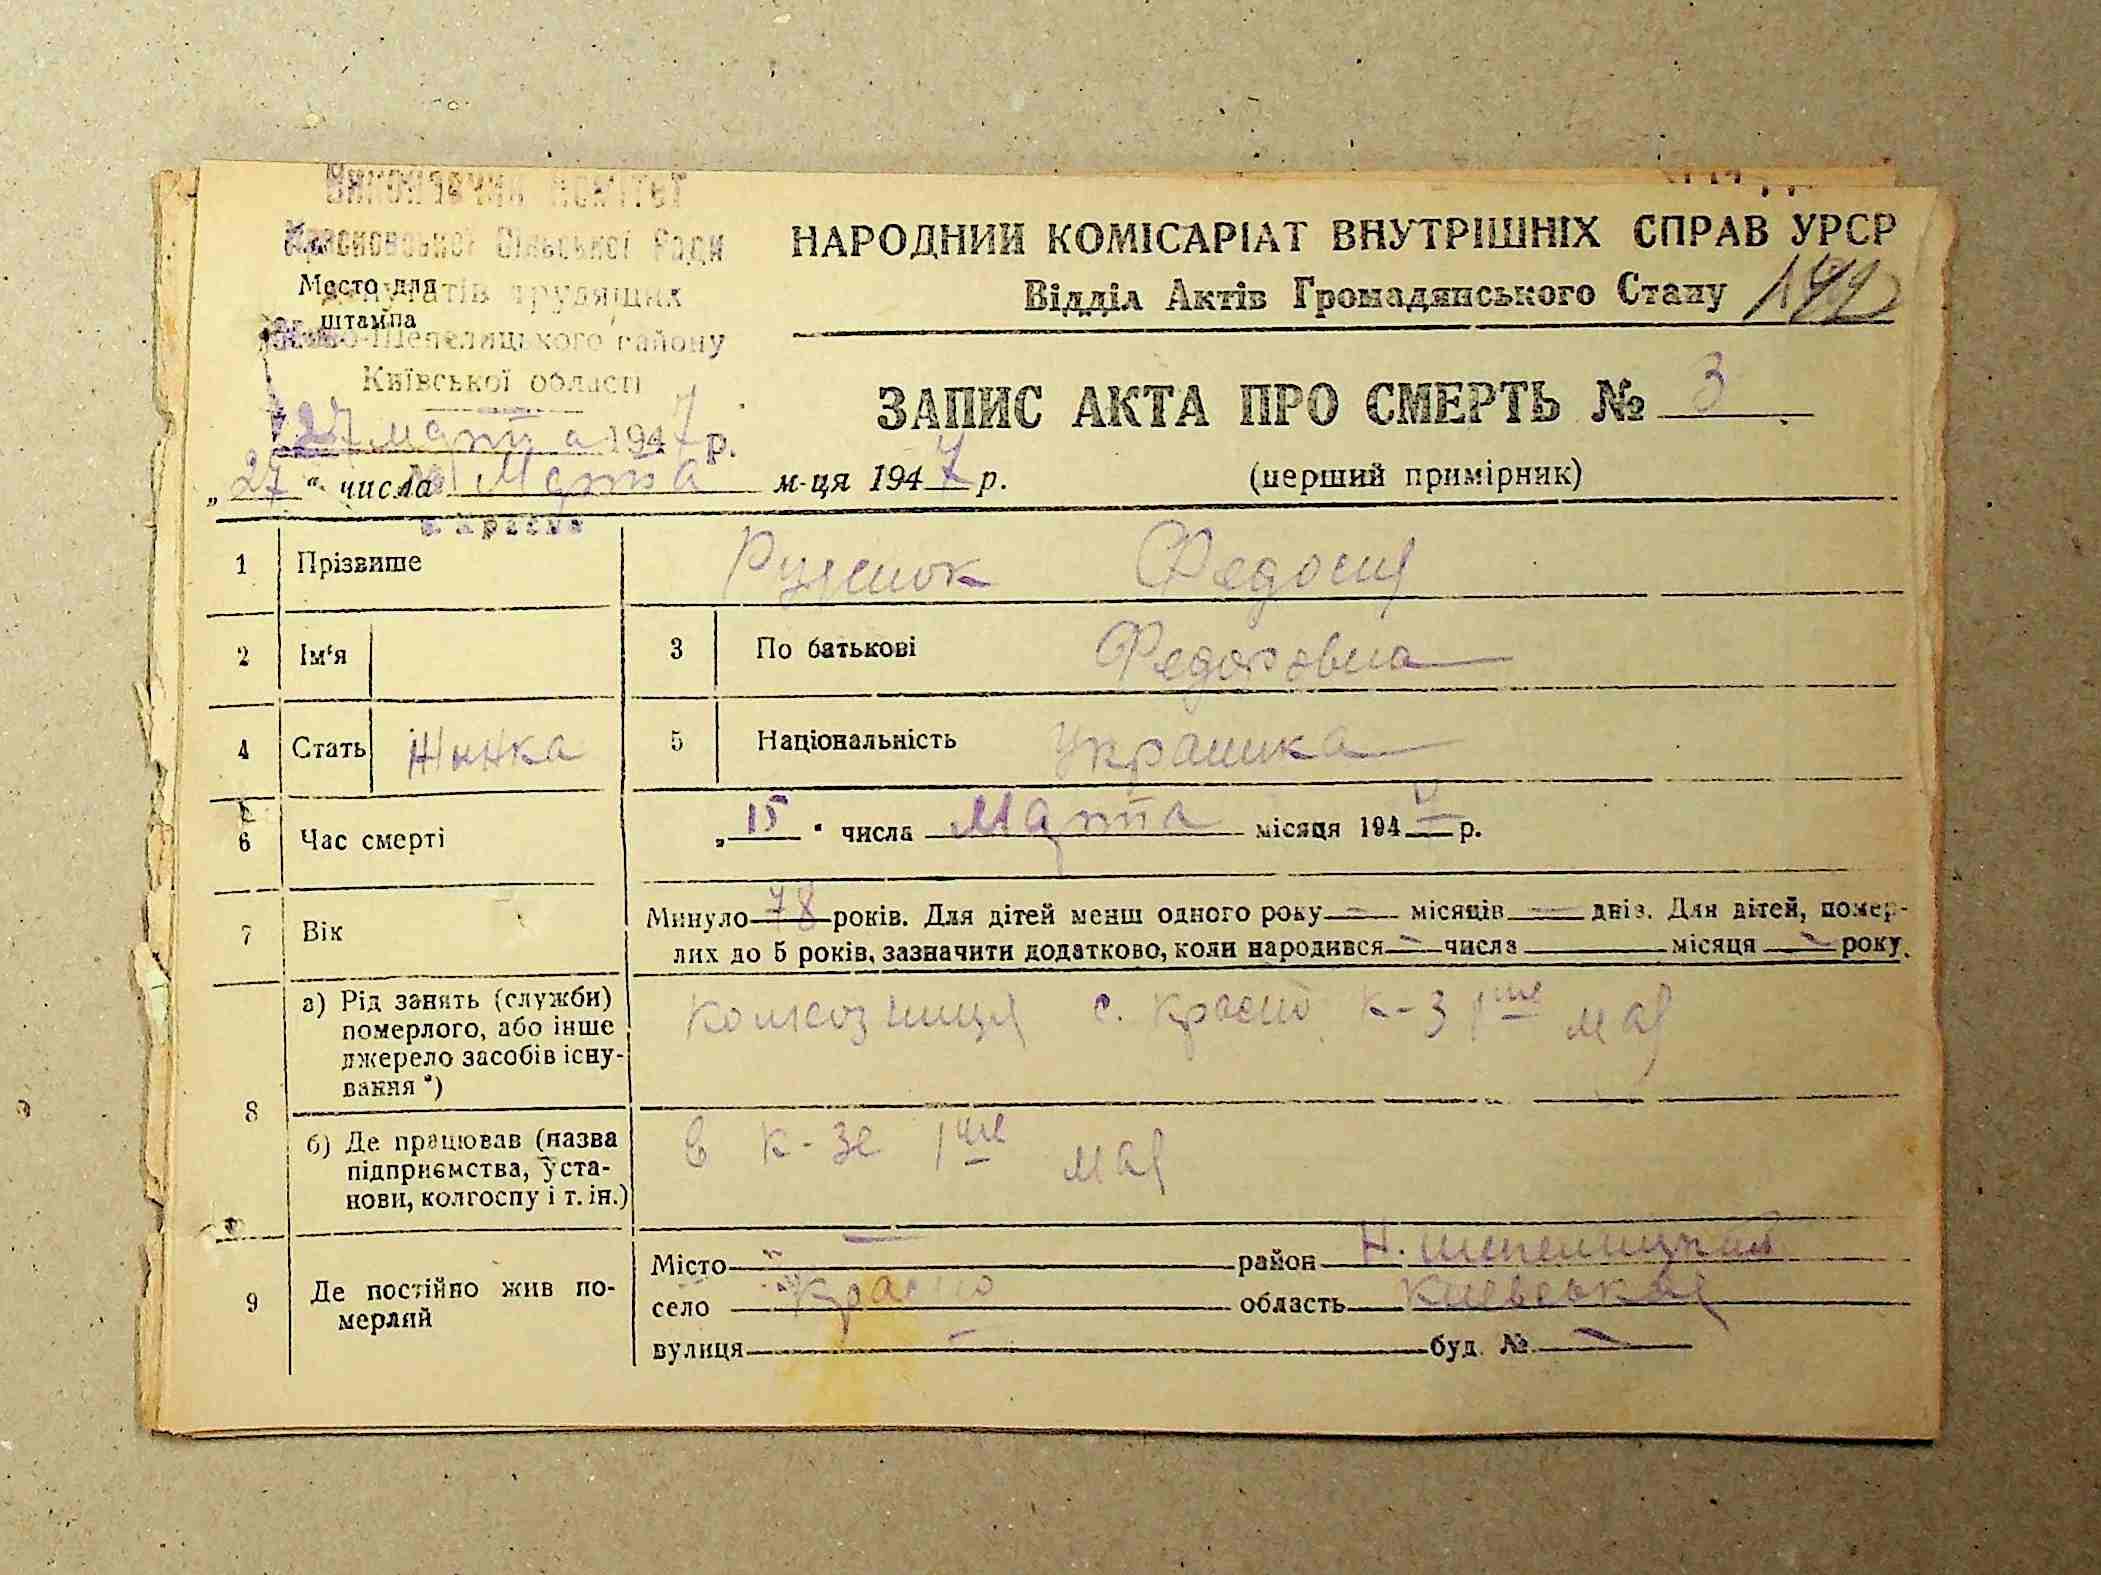 Виконавчий комітет
Красновської Сільської Ради
депутатів трудящих
Ново-Шепелицького району
Київської області
Место для
штампа
27 марта 1947 р.
с. Красно
НАРОДНИЙ КОМІСАРІАТ ВНУТРІШНІХ СПРАВ УРСР
Відділ Актів Громадянського Стану
ЗАПИС АКТА ПРО СМЕРТЬ № 3
„27“ числа Марта м-ця 1947 р. (перший примірник)
1 Прізвише Федосия
2 Ім‘я 3 По батькові Федоровна
4 Стать Жынка 5 Національність Украинка
6 Час смерті „15“ числа Марта місяця 194 р.
7 Вік Минуло 78 років. Для дітей менш одного року — місяців — днів. Для дітей, помер-
лих до 5 років, зазначити додатково, коли народився — числа місяця — року.
8 а) Рід занять (служби)
померлого, або інше
джерело засобів існу-
вання *)
колхозница с. Красно к-з 1ше мая
б) Де працював (назва
підприємства, уста-
нови, колгоспу і т. ін.)
в к-зе 1ше мая
9 Де постійно жив по-
мерлий
Місто — район Н. Шепелицкий
село Красно область Киевськая
вулиця — буд. № —